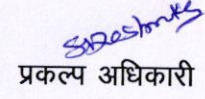 प्रकल्प अधिकारी